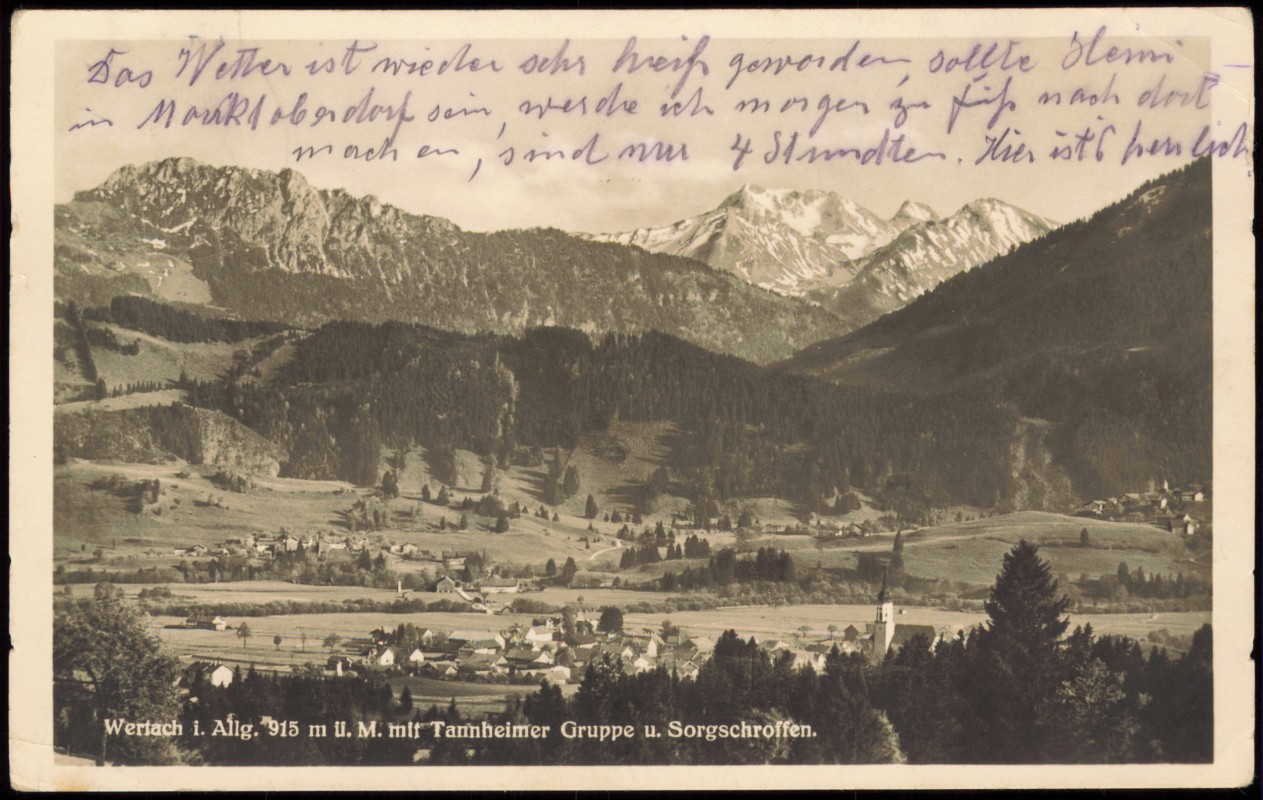 Das Wetter ist wieder sehr heiß geworden, sollte Heini
in Marktoberdorf sein, werde ich morgen zu Fuß nach dort
machen, sind nur 4 Stunden. Hier ist herrlich
Wertach i. Allg. 915 m ü. M. mit Tannheimer Gruppe u. Sorgschroffen.